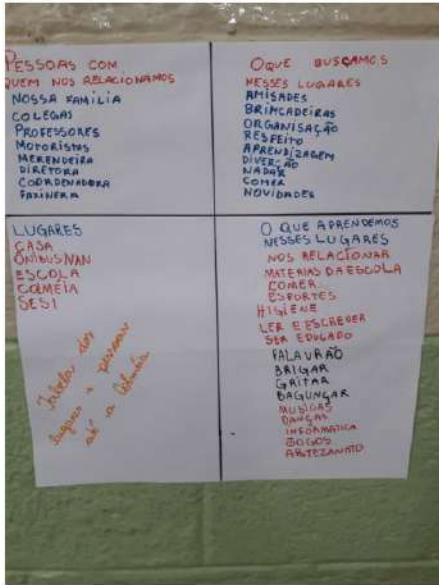 PESSOAS COM
QUEM NOS RELACIONAMOS
NOSSA FAMÍLIA
COLEGAS
PROFESSORES
MOTORISTAS
MERENDEIRA
DIRETORA
COORDENADORA
FAXINEIRA
OQUE BUSCAMOS
NESSES LUGARES
AMISADES
BRINCADEIRAS
ORGANISAÇÃO
RESPEITO
APRENDIZAGEM
DIVERSÃO
NADAR
COMER
NOVIDADES
LUGARES
CASA
ÔNIBUS/VAN
ESCOLA
COLMÉIA
SESI
Tabela dos
lugares e pessoas
até a Colméia
O QUE APRENDEMOS
NESSES LUGARES
NOS RELACIONAR
MATERIAS DA ESCOLA
COMER
ESPORTES
HIGIENE
LER E ESCREVER
SER EDUCADO
PALAVRÃO
BRIGAR
GRITAR
BAGUNÇAR
MUSICAS
DANÇAS
INFORMATICA
JOGOS
ARTEZANATO